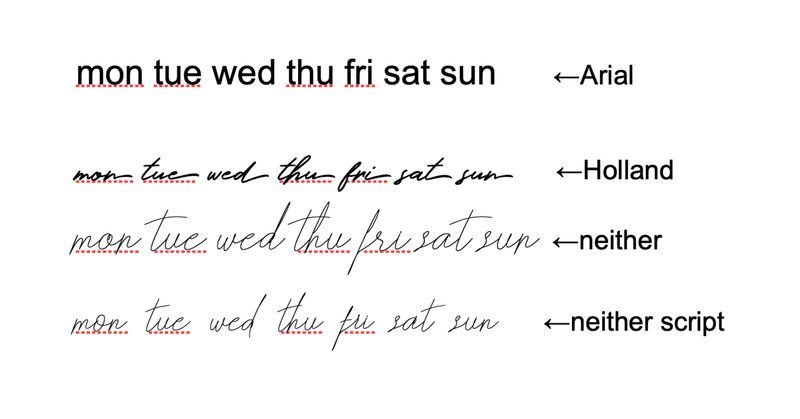 mon tue wed thu fri sat sun ←Arial
mon tue wed thu fri sat sun ←Holland
mon tue wed thu fri sat sun ←neither
mon tue wed thu fri sat sun ←neither script